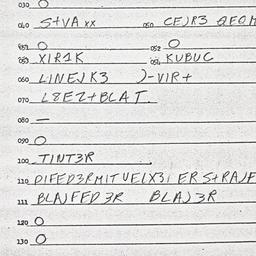 030 O
040 S+VA xx 050 CEJR3 QEQM
051 O 052 O
053 XIR1K 054 KUBUC
060 LINEJK3 )-VIR+
070 L8EZ+BLAT.
080 —
090 O
100 TINT3R
110 DIFED3RMITUELX3I ERS+RAJF
111 BLAJFED3R BLAJ3R
120 O
130 O